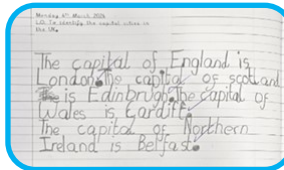 Monday 4th March 2024
LO: To identify the capital cities in
the UK.
The capital of England is
London. The capital of scotland
is Edinbrugh. The capital of
Wales is Cardiff.
The capital of Northern
Ireland is Belfast.